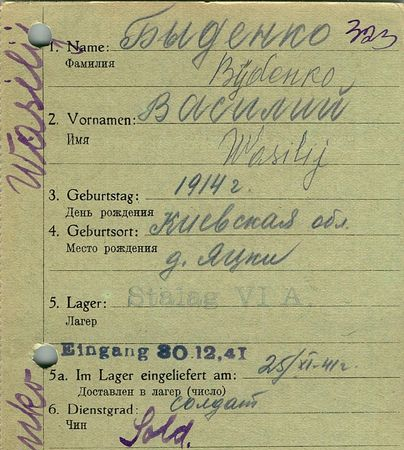 1. Name: Быденко 323
Фамилия
Bydenko
2. Vornamen: Василий
Имя
Wasilij
3. Geburtstag: 1914 г.
День рождения
4. Geburtsort: Киевская обл.
Место рождения
д. Яцки
5. Lager: Stalag VI A.
Лагер
Eingang 30.12.41
5a. Im Lager eingeliefert am: 25/XI-41 г.
Доставлен в лагер (число)
6. Dienstgrad: солдат
Чин
Sold.
Wasilij
nko